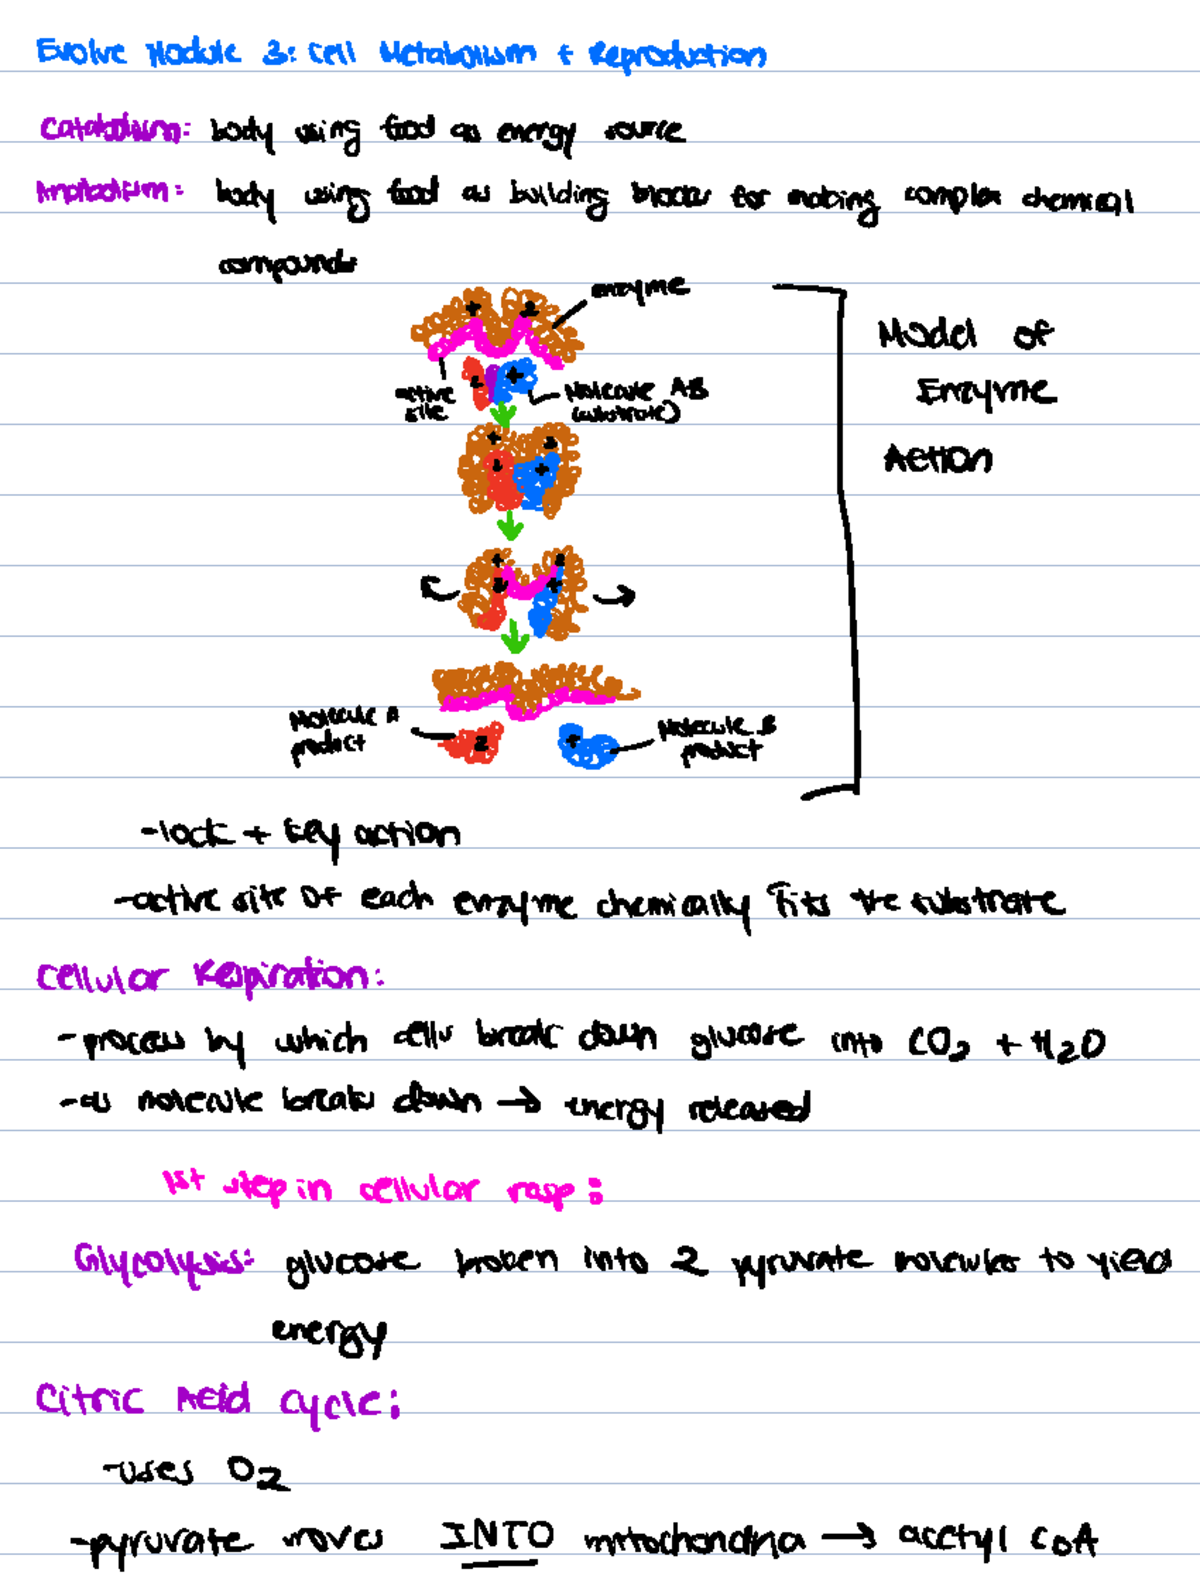 Evolve Module 3: Cell Metabolism + Reproduction
Catabolism: body using food as energy source
Anabolism: body using food as building blocks for making complex chemical
compounds
enzyme
Model of
Enzyme
Action
active
site
Molecule AB
(substrate)
Molecule A
product
Molecule B
product
-lock + key action
-active site of each enzyme chemically fits the substrate
Cellular Respiration:
-process by which cells break down glucose into CO2 + H2O
-as molecule breaks down → energy released
1st step in cellular resp:
Glycolysis: glucose broken into 2 pyruvate molecules to yield
energy
Citric Acid Cycle:
-uses O2
-pyruvate moves INTO mitochondria → acetyl CoA